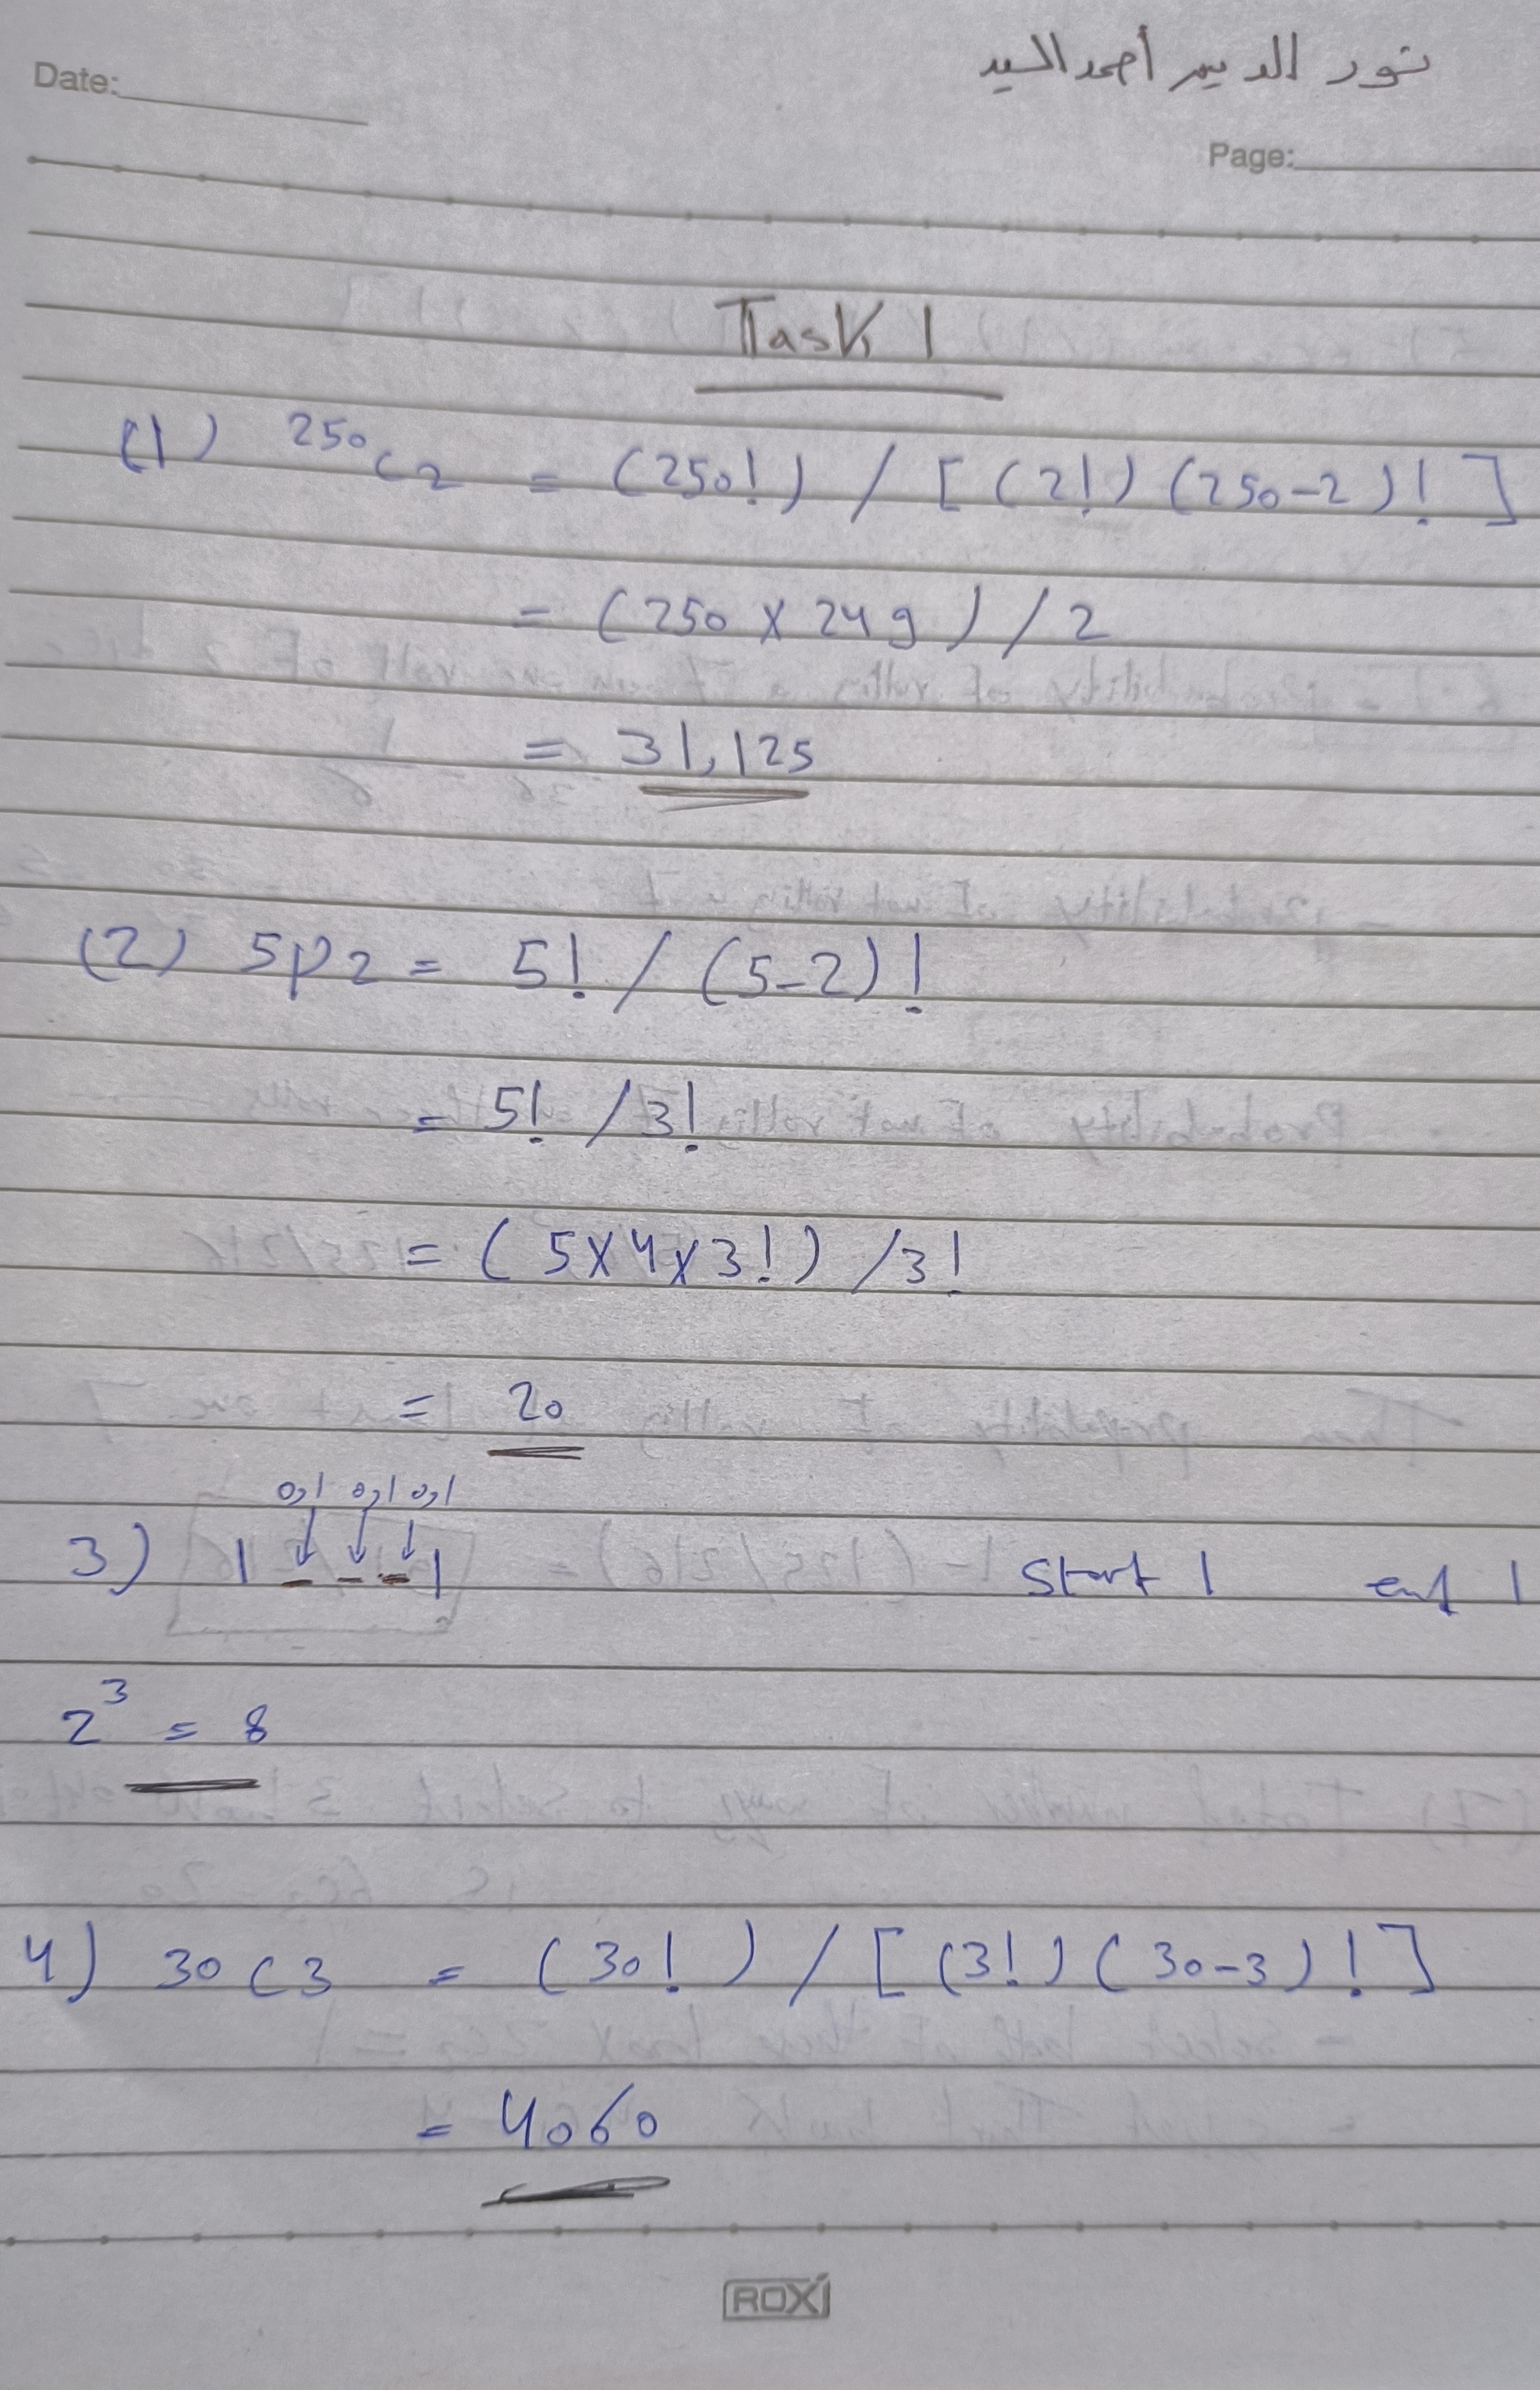 نور الدين أحمد السيد
Date:
Page:
Task 1
(1) 250C2 = (250!) / [(2!)(250-2)!]
= (250 x 249) / 2
= 31,125
(2) 5P2 = 5! / (5-2)!
= 5! / 3!
= (5x4x3!) / 3!
= 20
0,1 0,1 0,1
3) 1 _ _ _ 1 Start 1 end 1
2³ = 8
4) 30C3 = (30!) / [(3!)(30-3)!]
= 4060
ROXI